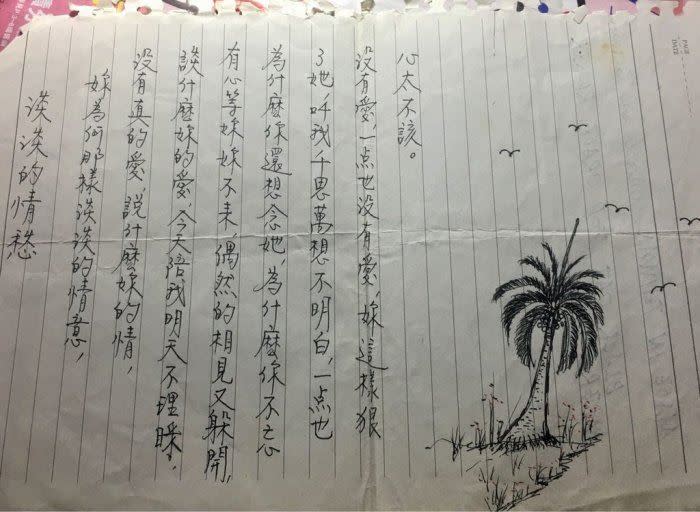 淡淡的情愁
妳為何那樣淡淡的情意，
沒有真的愛，說什麼妳的情，
談什麼妳的愛，今天陪我明天不理睬，
有心等妳妳不來，偶然的相見又躲開，
為什麼你還想念她，為什麼你不忘
了她，叫我千思萬想不明白，一点也
沒有愛一点也沒有愛，妳這樣狠
心太不該。
PAGE
DATE